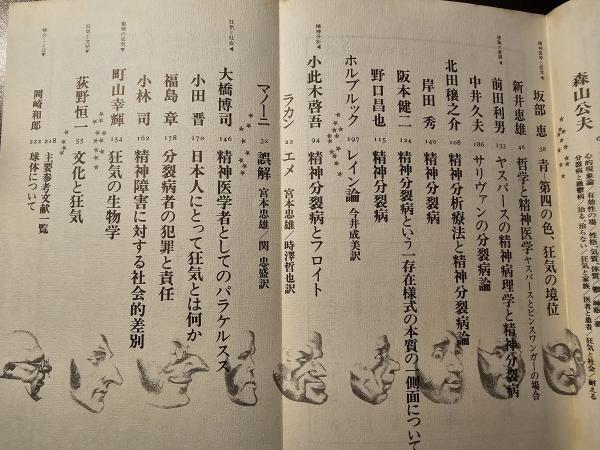 森山公夫
心的現象論/有効性の場/性格、気質、体質、
分裂病と躁鬱病/治る、治らない/狂気と家族/医者と患者/狂気と社会/耐える
精神医学と哲学▼
坂部 恵 38 青―第四の色、狂気の境位
新井恵雄 46 哲学と精神医学 ヤスパースとビンスワンガーの場合
前田利男 133 ヤスパースの精神病理学と精神分裂病
中井久夫 186 サリヴァンの分裂病論
北田穣之介 108 精神分析療法と精神分裂病論
岸田 秀 140 精神分裂病
阪本健二 124 精神分裂病という一存在様式の本質の一側面について
野口昌也 115 精神分裂病
ホルブルック 197 レイン論 今井成美訳
精神分析▼
小此木啓吾 94 精神分裂病とフロイト
ラカン 22 エメ 宮本忠雄/時澤哲也訳
マノーニ 32 誤解 宮本忠雄/関 忠盛訳
狂気と社会▼
大橋博司 146 精神医学者としてのパラケルスス
小田 晋 170 日本人にとって狂気とは何か
福島 章 178 分裂病者の犯罪と責任
小林 司 162 精神障害に対する社会的差別
町山幸輝 154 狂気の生物学
狂気と文明▼
荻野恒一 55 文化と狂気
218 主要参考文献一覧
岡崎和郎 222 球体について